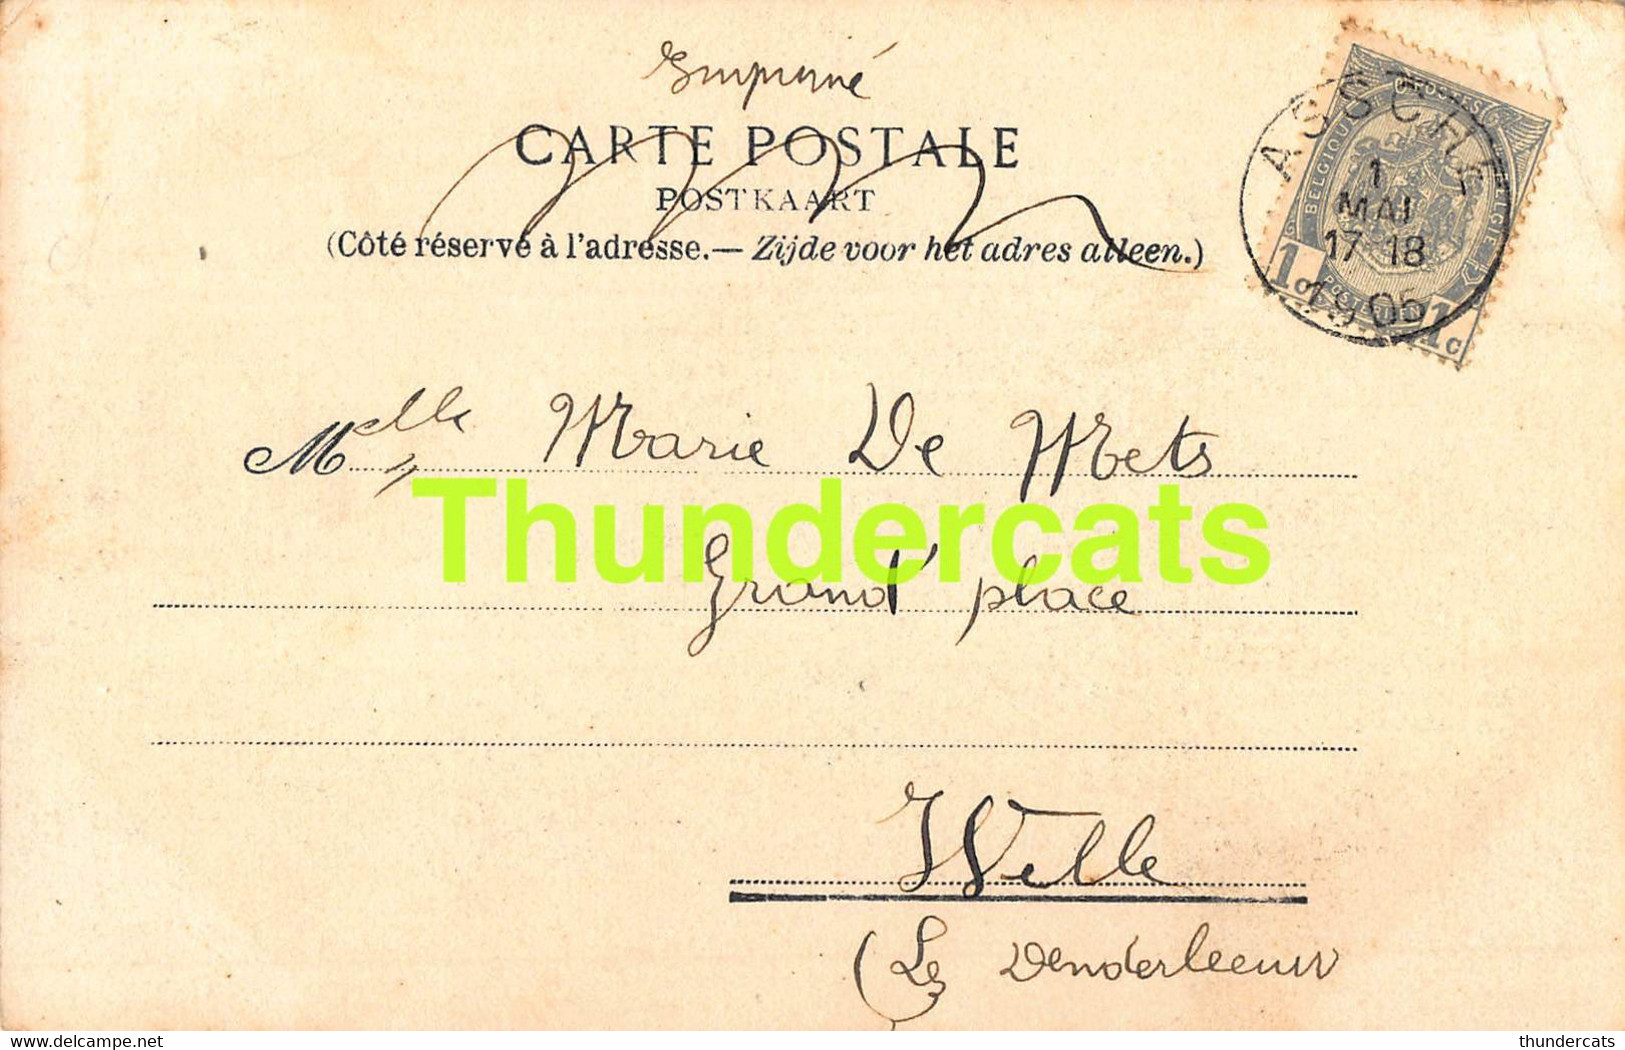 Imprimé
CARTE POSTALE
POSTKAART
(Côté réservé à l'adresse.— Zijde voor het adres alleen.)
ASSCHE
1
MAI
17 18
1905
BELGIQUE POSTES BELGIE
POSTERIJEN
1c 1c
Melle Marie De Mets
Thundercats
Grand' place
Welle
(Lez Denderleeuw
delcampe.net
thundercats